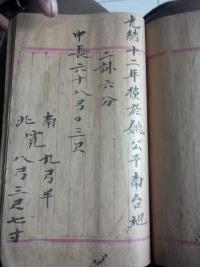 光緒十二年換於姚公平南台地
二畝六分
中長六十八弓〇三尺
南九弓半
北寬八弓三尺七寸